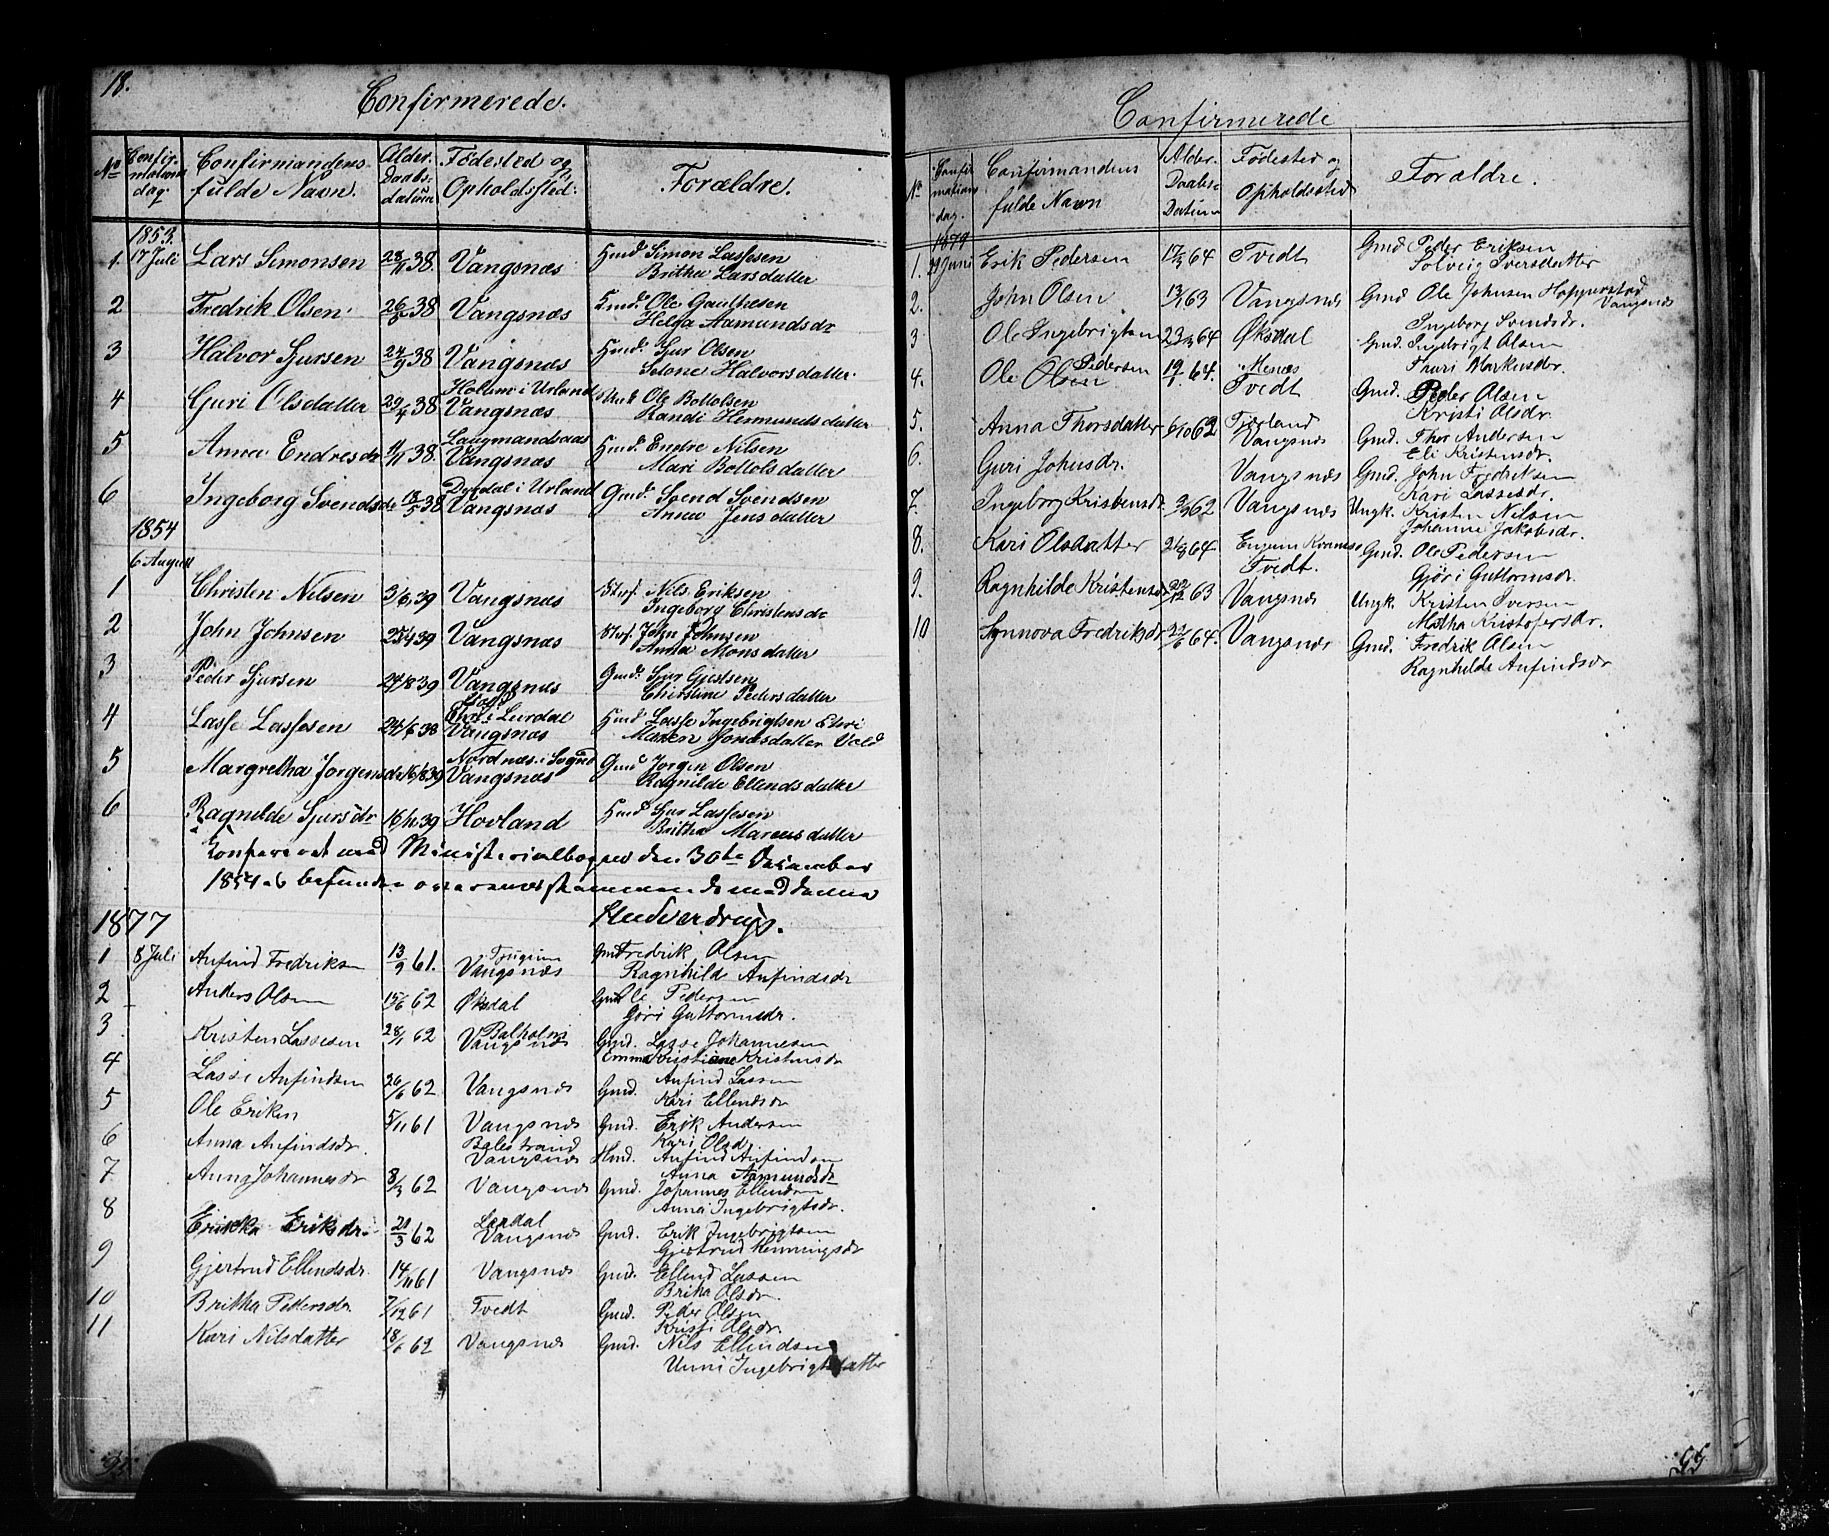 18.
Confirmerede.
No Confirmations dag. Confirmandens fulde Navn. Alder. Daabsdatum Fødested og Opholdssted: Forældre.
1853.
1. 17 Juli Lars Simonsen 28/11 38. Vangsnæs Hmd. Simon Lassesen
Britha Larsdatter
2 Fredrik Olsen 26/6 38 Vangsnæs Hmd. Ole
Helga Aamundsdr
3 Halvor Sjursen 24/9 38 Vangsnæs Hmd. Sjur Olsen
Halvorsdatter.
4 Guri Olsdatter 38 i Urland Vangsnæs Ole Bottolsen
Randi Hermundsdatter
5 Anna Endresdr 4/11 38. Vangsnæs Hmd. Endre Nilsen
Mari Bottolsdatter
6 Ingeborg Svendsdr 13/5 38 i Urland Vangsnæs Gmd. Svend Svendsen
Anna Jensdatter
1854
6 August
1 Christen Nilsen 3/6 39 Vangsnæs Strf. Nils Eriksen
Ingeborg Christensdr
2 John Johnsen 25/4 39 Vangsnæs Strf. John Johnsen
Anna Monsdatter
3 Peder Sjursen 24/8 39 Vangsnæs Gmd. Sjur Gjestsen
Chirstine Pedersdatter
4 Lasse Lassesen 24/6 38 i Leirdal Vangsnæs Hmd. Lasse Ingebrigtsen
Maren Jonasdatter
5 Margretha Jørgensdr 16/8 39 Nordnæs i Sogndal Vangsnæs Gmd Jørgen Olsen
Ragnilde Ellendsdatter
6 Ragnilde Sjursdr 16/11 39 Hovland Hmd Sjur Lassesen
Britha Marcusdatter
Konfereret med Ministerialbogen den 30te December
1854 og befunden overensstemmende med denne
1877
1 8 Juli Anfind Fredriksen 13/9 61. Vangsnæs Gmd Fredrik Olsen
Ragnhilde Anfindsdr
2 Anders Olsen 15/6 62 Øksdal Gmd Ole Pedersen
Gjøri Guttormsdr.
3 Kristen Lassesen 28/1 62 Balholm Vangsnæs Gmd. Lasse Johannesen
Emma Kristiane Kristensdr
4 Lasse Anfindsen 26/6 62 Vangsnæs Gmd. Anfind Lassen
Kari Ellendsdr
5 Ole Eriksen 5/11 61 Vangsnæs Gmd. Erik Andersen
Kari Olsd
6 Anna Anfindsdr. Balestrand Vangsnæs Hmd. Anfind Anfindsen
Anna Aamundsdr
7 Anna Johannesdr 8/3 62 Vangsnæs Gmd. Johannes Ellendsen
Anna Ingebrigtsdr.
8 Erikka Eriksdr. 20/3 62 Lerdal Vangsnæs Gmd. Erik Ingebrigtsen
Gjertrud Henningsdr
9 Gjertrud Ellendsdr. 14/11 61 Vangsnæs Gmd. Ellend Lassen
Britha Olsdr.
10 Britha Pedersdr 7/12 61 Tvedt Gmd. Peder Olsen
Kristi Olsdr.
11 Kari Nilsdatter 18/6 62 Vangsnæs Gmd. Nils Ellendsen
Unni Ingebrigtsdatter
Confirmerede
No. Confirmations dag. Confirmandens fulde Navn Alder. Daabs Datum Fødested og Opholdssted Forældre.
1879
1. Juni Erik Pedersen 17/3 64 Tvedt Gmd Peder Eriksen
Solveig Iversdatter
2. John Olsen 13/1 63 Vangsnæs Gmd Ole Johnsen Hopperstad Vangsnæs
Ingeborg Svendsdr.
3. Ole Ingebrigtsen 23/3 64 Øksdal Gmd. Ingebrigt Olsen
Tauri Markusdr.
4. Ole Olsen Pedersen 19/1 64. Menæs Tvedt Gmd. Peder Olsen
Kristi Olsdr.
5. Anna Thorsdatter 6/10 62 Fjærland Vangsnæs Gmd. Thor Andersen
Eli Kristensdr.
6. Guri Johnsdr. Vangsnæs Gmd. John Fredriksen
Kari Lassesdr.
7. Ingeborg Kristensdr. 3/9 62 Vangsnæs Ungk. Kristen Nilsen
Johanne Jakobsdr.
8. Kari Olsdatter 64 Tvedt. Gmd. Ole Pedersen
Gjøri Guttormsdr.
9. Ragnhilde Kristensdr 22/12 63 Vangsnæs Ungk. Kristen Iversen
Martha Kristofersdr.
10 Synnova Fredriksdr. 21/6 64. Vangsnæs Gmd. Fredrik Olsen
Ragnhilde Anfindsdr
55